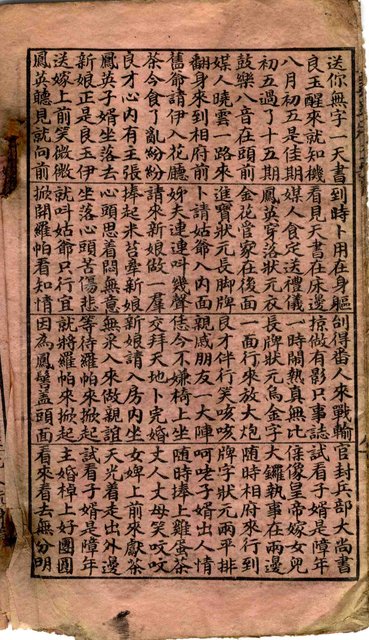 送你無字一天書到時卜用在身軀刣得番人來戰輸官封兵部大尚書
良玉醒來就知機看見天書在床邊掠做有影只事誌試看子婿是障年
八月初五是佳期媒人食定送禮儀一時鬧熱真無比保像皇帝嫁女兒
初五過了十五期鳳英穿落狀元衣長牌狀元寫金字大鑼執事在兩邊
鼓樂八音在頭前金花堂家在後面一面行來放大炮隨時相府來行到
媒人曉雲一路來進寶狀元長脚牌良才伴行笑咳咳牌字狀元兩平排
翻身來到相府前卜請姑爺入內面親戚朋友一大陣呵咾子婿出人情
舊爺請伊入花廳姊夫連連叫幾聲恁今不嫌椅上坐隨時捧上雞蛋茶
茶今食了亂紛紛請來新娘做一羣交拜天地卜完婚丈人丈母笑吻吻
良才心內有主張捧起米苔牽新娘新娘請入房內坐女婢上前來獻茶
鳳英子婿坐落去心頭思着悶無意無采入來做親誼天光着走出外邊
新娘正是良玉伊坐落心頭苦傷悲等待羅帕來掀起試看子婿是障年
送嫁上前笑微微就叫姑爺只行宜就將羅帕來掀起主婚棹上好團圓
鳳英聽見就向前掀開羅帕看知情因為鳳髻蓋頭面看來看去無分明